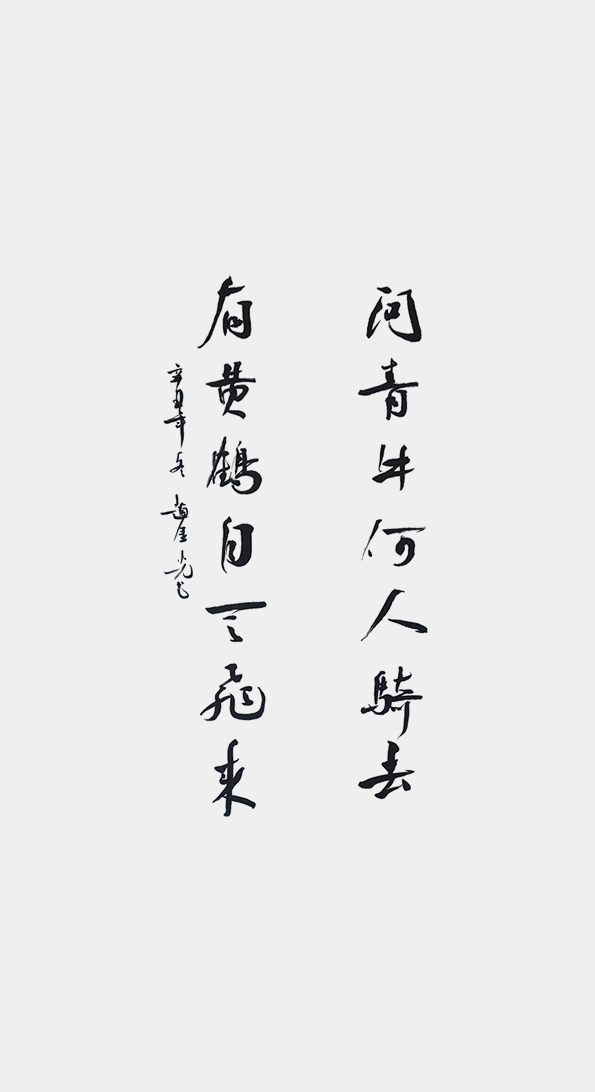 问青牛何人騎去
有黄鶴自天飛来
辛丑年冬